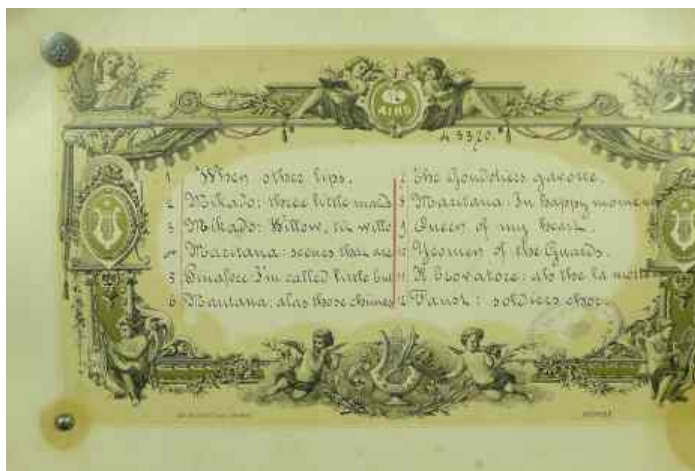 AIRS
4 3320.
1 When other lips.
2 Mikado: three little maids
3 Mikado: Willow, tit willo
Maritana: scenes that are
5 Pinafore I'm called little but
6 Maritana: alas those chimes
The Gondoliers gavotte.
8 Maritana: In happy momen
9 Queen of my heart.
10 Yeomen of the Guards.
11 Il trovatore: ah the la morte
12 Faust: soldiers chor.